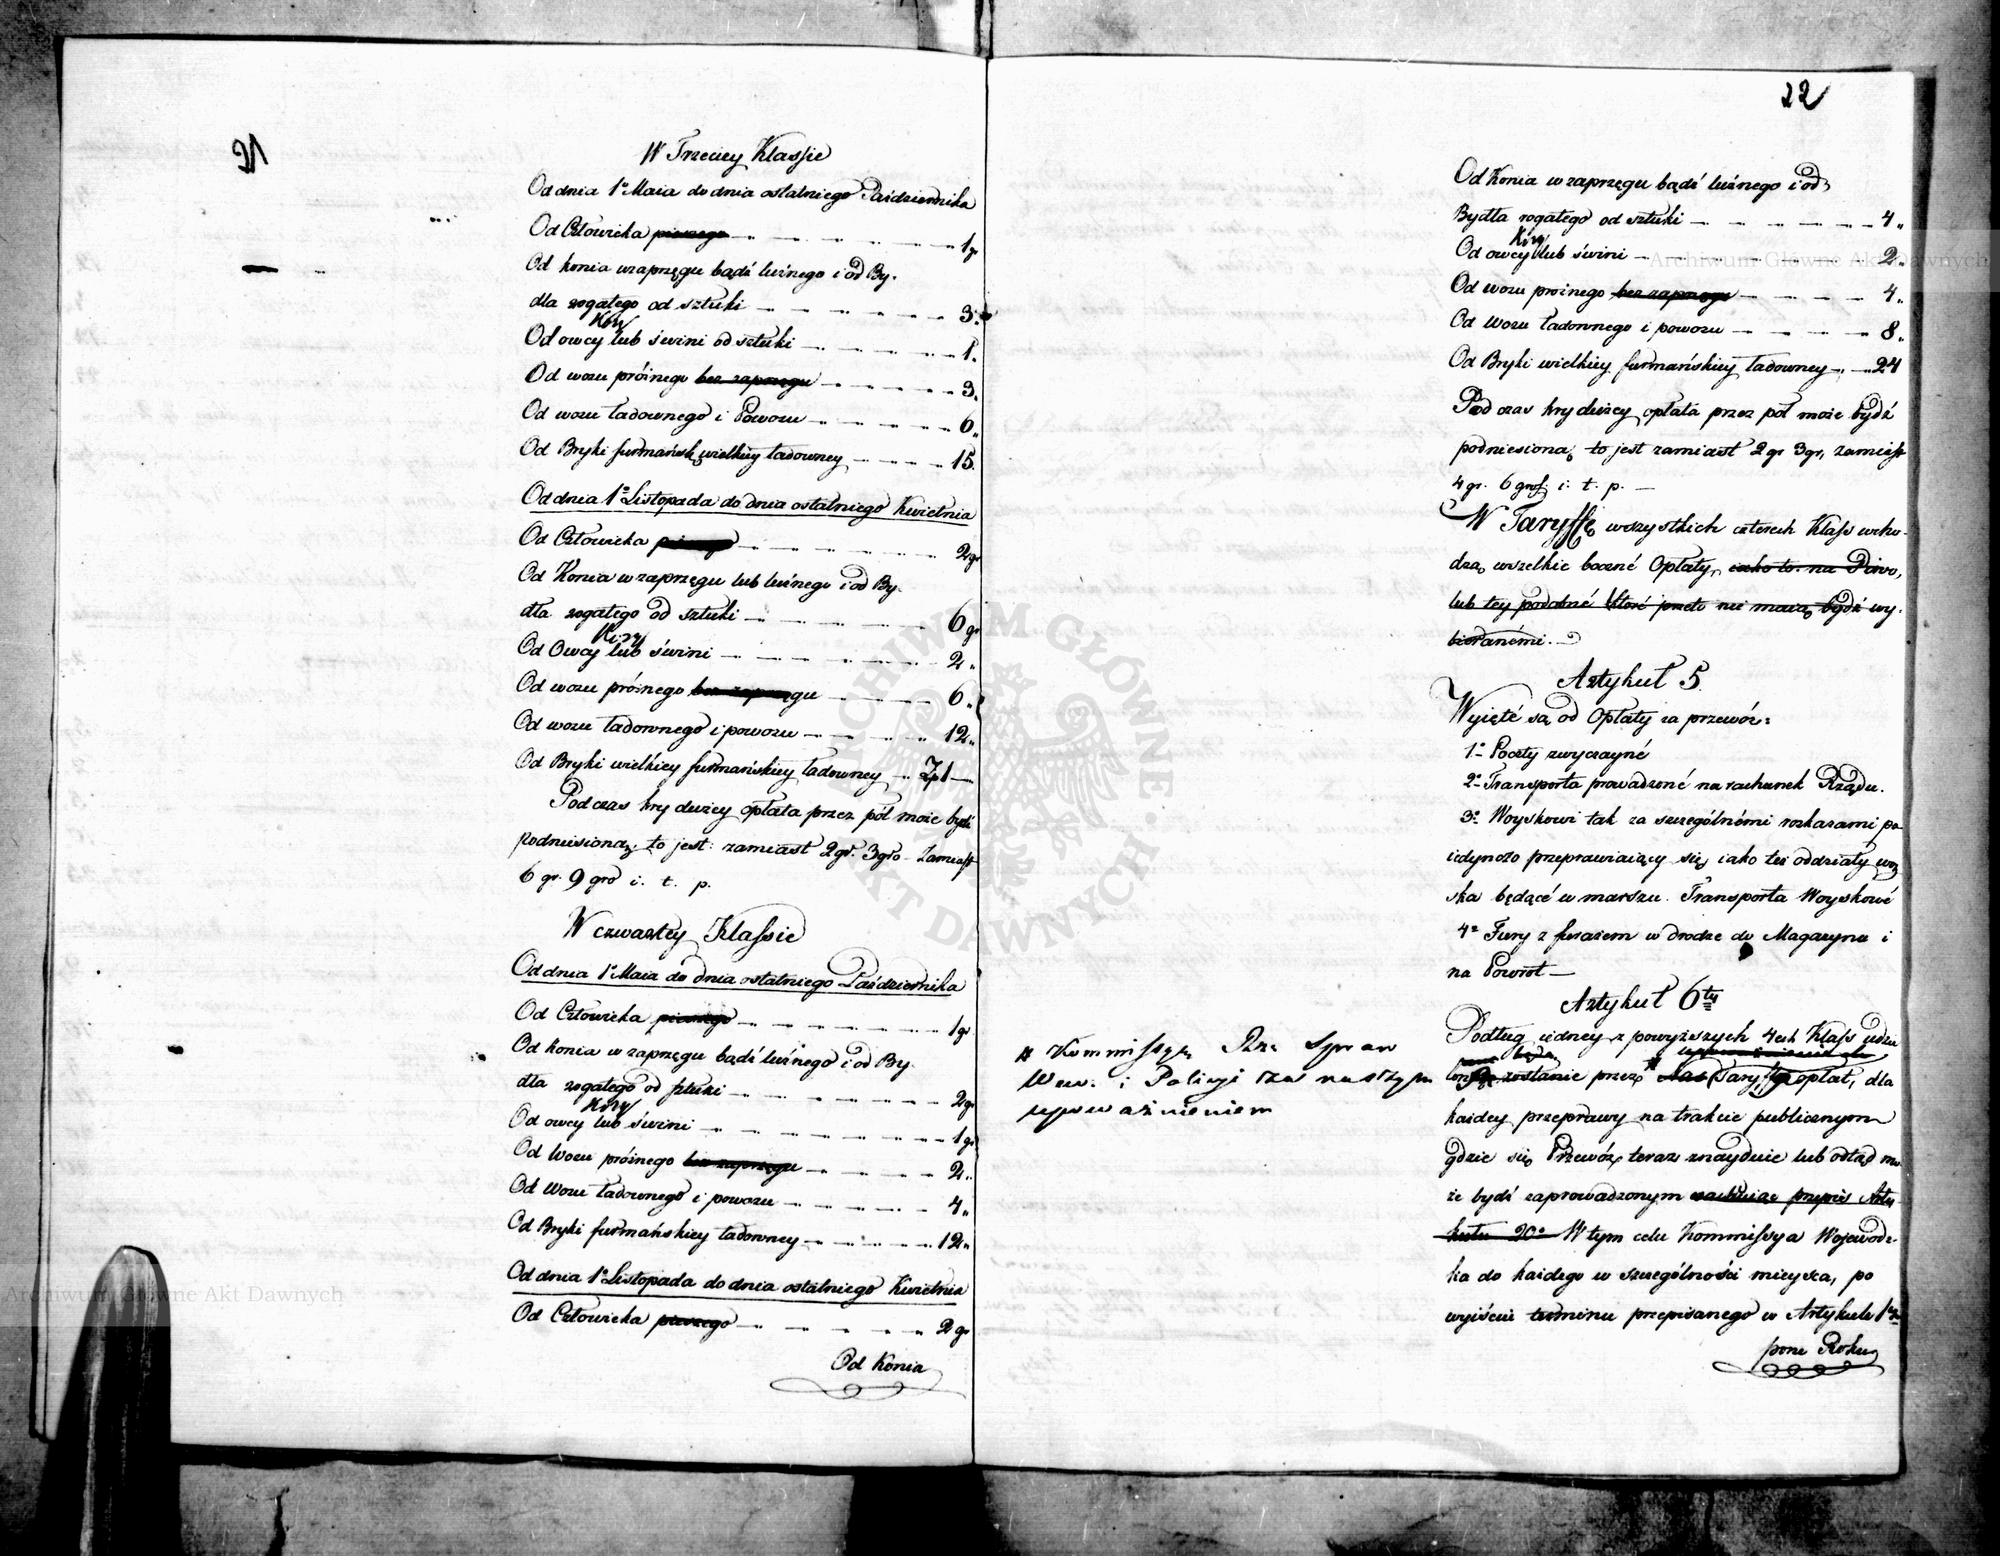 21
W Trzeciey Klassie
Od dnia 1o Maia do dnia ostatniego Października
Od Człowieka pieszego 1 gr
Od konia w zaprzęgu bądź luźnego i od By-
dła rogatego od sztuki 3.
Kozy
Od owcy lub świni od sztuki 1.
Od wozu próżnego bez zaprzęgu 3.
Od wozu ładownego i Powozu 6.
Od Bryki furmańsk. wielkiey ładowney 15.
Od dnia 1o Listopada do dnia ostatniego Kwietnia
Od Człowieka pieszego 2 gr
Od Konia w zaprzęgu lub luźnego i od By-
dła rogatego od sztuki 6 gr
Kozy
Od Owcy lub świni 2.
Od wozu próżnego bez zaprzęgu 6.
Od wozu ładownego i powozu 12.
Od Bryki wielkiey furmańskiey ładowney Zł 1
Podczas kry dużey opłata przez pół może bydź
podniesioną, to jest: zamiast 2 gr. 3 gro. Zamiast
6 gr. 9 gro i. t. p.
W czwartey Klassie
Od dnia 1o Maia do dnia ostatniego Października
Od Człowieka pieszego 1 gr
Od konia w zaprzęgu bądź luźnego i od By-
dła rogatego od sztuki 2 gr
Kozy
Od owcy lub świni 1 gr
Od Wozu próżnego bez zaprzęgu 2.
Od Wozu ładownego i powozu 4.
Od Bryki furmańskiey ładowney 12.
Od dnia 1o Listopada do dnia ostatniego Kwietnia
Od Człowieka pieszego 2 gr
Od Konia
22
Od Konia w zaprzęgu bądź luźnego i od
Bydła rogatego od sztuki 4.
Kozy
Od owcy lub świni 2.
Od wozu próżnego bez zaprzęgu 4.
Od Wozu ładownego i powozu 8.
Od Bryki wielkiey furmańskiey ładowney 24
Pod czas kry dużey opłata przez pół może bydź
podniesioną, to jest zamiast 2 gr 3 gr, zamiast
4 gr. 6 grosz. i. t. p.
W Taryffę wszystkich czterech Klass wcho-
dzą wszelkie boczné Opłaty, iako to: na Piwo,
lub tey podobné któré przeto nie maią bydź wy-
bieranémi.
Artykuł 5.
Wyięté są od Opłaty za przewóz:
1o Poczty zwyczayné
2o Transporta prowadzoné na rachunek Rządu.
3o Woyskowi tak za szczególnémi rozkazami po-
iedynczo przeprawiaiący się, iako też oddziały woy-
ska będącé w marszu. Transporta Woyskowé
4o Fury z furażem w drodze do Magazynu i
na Powrót
Artykuł 6ty
Podług iedney z powyższych 4ech Klass udzie
będą
loną zostanie przez # Nas Taryffa opłat, dla
każdey przeprawy na trakcie publicznym
gdzie się Przewóz teraz znayduie lub odtąd mo-
że bydź zaprowadzonym zachowuiąc przepis Arty
kułu 20o W tym celu Kommissya Wojewódz-
ka do każdego w szczególności mieysca, po
wyiściu terminu przepisanego w Artykule 1m
# Kommissyą Rzą: Spraw
Wew: i Policyi za naszym
upoważnieniem
Archiwum Główne Akt Dawnych
ARCHIWUM GŁÓWNE AKT DAWNYCH
Archiwum Główne Akt Dawnych